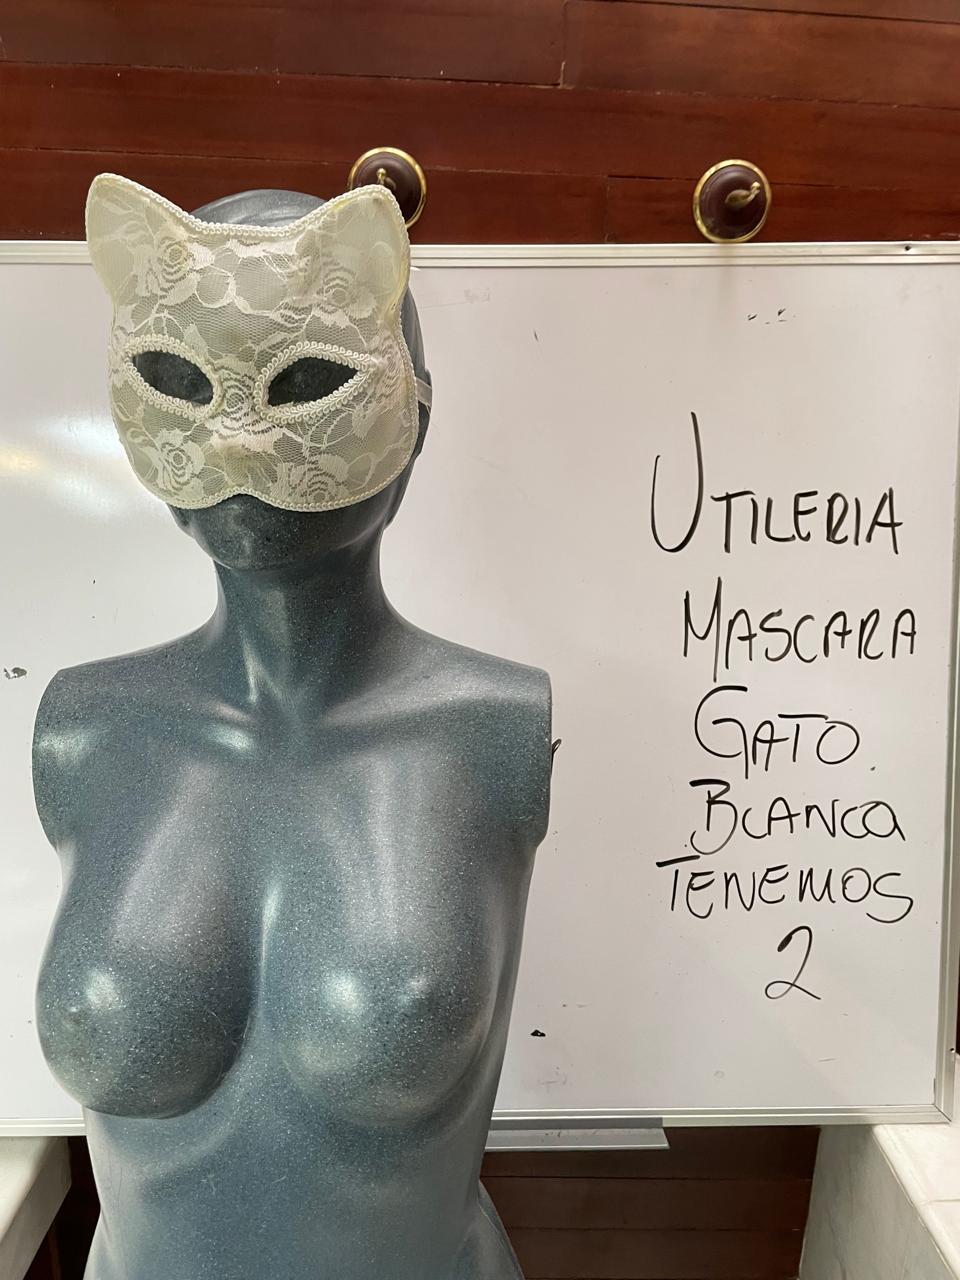 UTILERIA
MASCARA
GATO.
BLANCA
TENEMOS
2